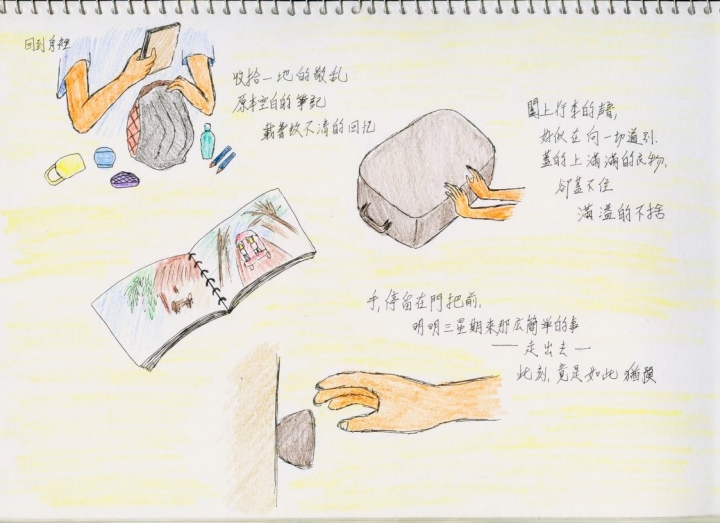 回到房裡
收拾一地的散亂
原本空白的筆記
載著故不清的回忆
闔上行李的聲,
好似在向一切道別.
蓋的上滿滿的衣物.
卻蓋不住
滿溢的不捨
手,停留在門把前,
明明三星期來那麼簡單的事
── 走出去 ─
此刻,竟是如此猶豫